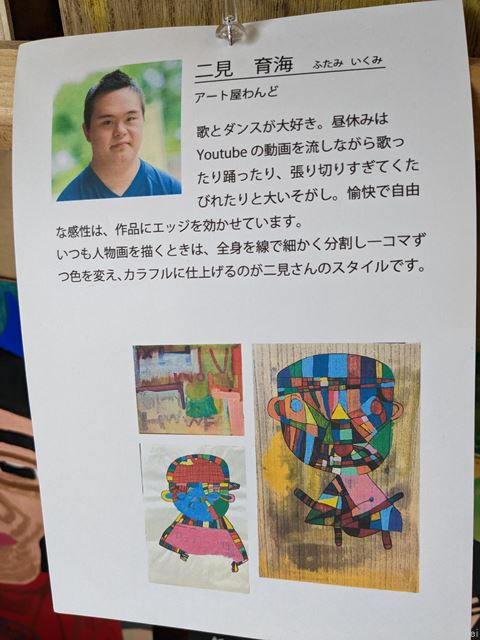 二見 育海 ふたみ いくみ
アート屋わんど
歌とダンスが大好き。昼休みは
Youtube の動画を流しながら歌っ
たり踊ったり、張り切りすぎてくた
びれたりと大いそがし。愉快で自由
な感性は、作品にエッジを効かせています。
いつも人物画を描くときは、全身を線で細かく分割し一コマず
つ色を変え、カラフルに仕上げるのが二見さんのスタイルです。